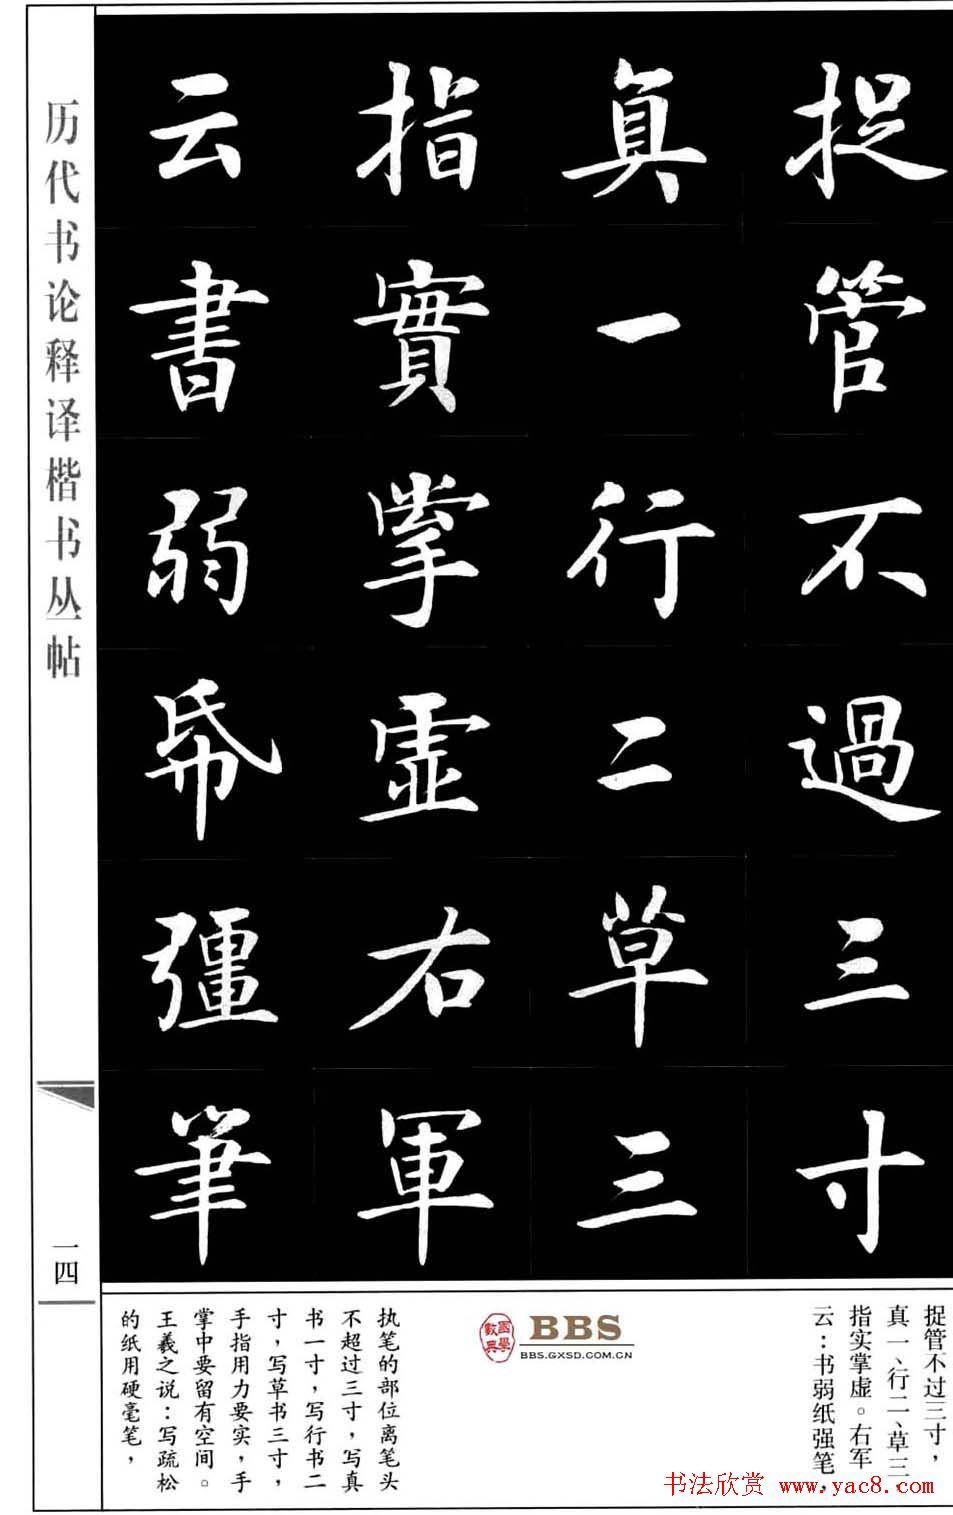 捉管不過三寸
真一行二草三
指實掌虛右軍
云書弱帋彊筆
历代书论释译楷书丛帖
一四
捉管不过三寸，
真一、行二、草三
指实掌虚。右军
云：书弱纸强笔，
國學數典
BBS
BBS.GXSD.COM.CN
执笔的部位离笔头
不超过三寸，写真
书一寸，写行书二
寸，写草书三寸，
手指用力要实，手
掌中要留有空间。
王羲之说：写疏松
的纸用硬毫笔，
书法欣赏 www.yac8.com